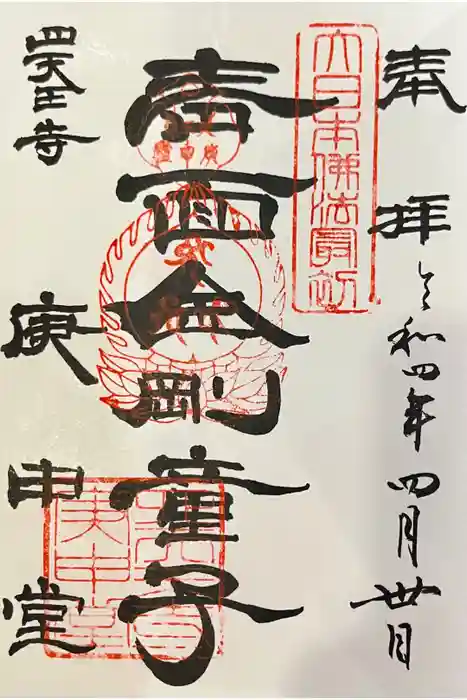 奉拝
令和四年四月丗日
大日本佛法最初
青面金剛童子
四天王寺
庚申堂